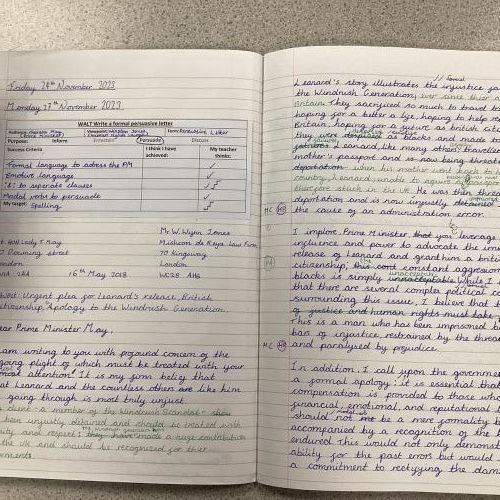 Friday 24th November 2023
Monday 27th November 2023
WALT Write a formal persuasive letter
Audience: Theresa May (Prime Minister) Viewpoint: Winston Jones, Form: Persuasive Letter
Purpose: Inform Entertain Persuade Discuss
Success Criteria I think I have achieved: My teacher thinks:
Formal language to adress the PM
Emotive language
';' to seperate clauses
Modal verbs to persuade
My target: Spelling
Mr W. Wyn Jones
Hon Lady T. May Mishcom de Reya Law Firm
Downing street 70 Kingsway
London London
2AA 16th May 2018 WC2B 6HS
Urgent plea for Leonard's release, British
citizenship, Apology to the Windrush Generation.
Dear Prime Minister May,
am writing to you with profound concern of the
going plight of which must be treated with your
most attention. It is my firm belief that
Leonard and the countless others are like him
going through is most truly unjust
client - a member of the Windrush Scandal -
been unjustly detained and should be treated with
and respect; they have made a huge contribution
the UK and should be recognised for their
Leonard's story illustrates the injustice
the Windrush Generation, ever since their
Britain. They sacrificed so much to travel
hoping for a better life, hoping to help
Britain, hoping for a future as british
they were despised as blacks and made
Leonard, like many other travelle
mother's passport and is now being threat
deportation when his mother went back to
country, Leonard unable to
therefore stuck in the UK. He was then threa
deportation and is now unjustly detained
the cause of an administration error.
I implore, Prime Minister that you leverage
influence and power to advocate the imm
release of Leonard and grant him a briti
citizenship, this constant aggression
blacks is simply unacceptable. While I
that there are several complex political
surrounding this issue, I believe that
of justice and human rights must take
This is a man who has been imprisoned
bars of injustice, restrained by the threa
and paralysed by prejudice.
In addition, I call upon the governme
a formal apology; it is essential that
compensation is provided to those who
financial, emotional, and reputational
should not be a mere formality b
accompanied by a recognition of the
endured this would not only demonst
ability for the past errors but would
a commitment to rectifying the dam